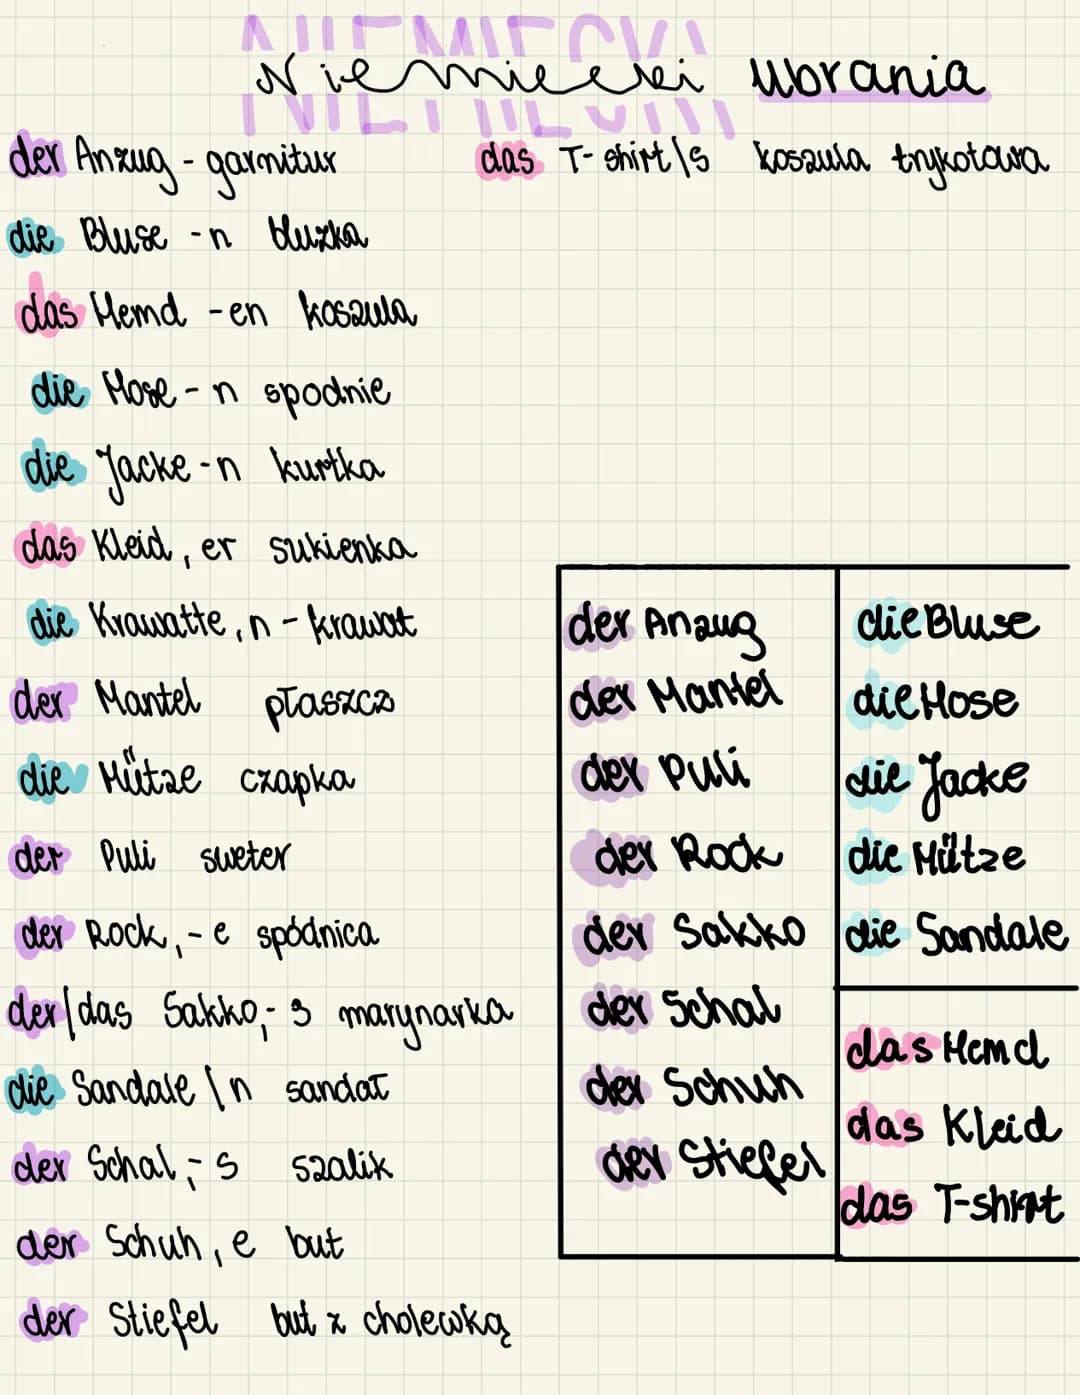 NIEMIECKI
Niemiecki ubrania
der Anzug - garnitur
das T-shirt/s koszula trykotowa
die Bluse -n bluzka
das Hemd -en koszula
die Hose -n spodnie
die Jacke -n kurtka
das Kleid, er sukienka
die Krawatte, n - krawat
der Mantel płaszcz
die Mütze czapka
der Puli sweter
der Rock, -e spódnica
der/das Sakko, -s marynarka
die Sandale /n sandał
der Schal, -s szalik
der Schuh, e but
der Stiefel but z cholewką
der Anzug
der Mantel
der Puli
der Rock
der Sakko
der Schal
der Schuh
der Stiefel
die Bluse
die Hose
die Jacke
die Mütze
die Sandale
das Hemd
das Kleid
das T-shirt